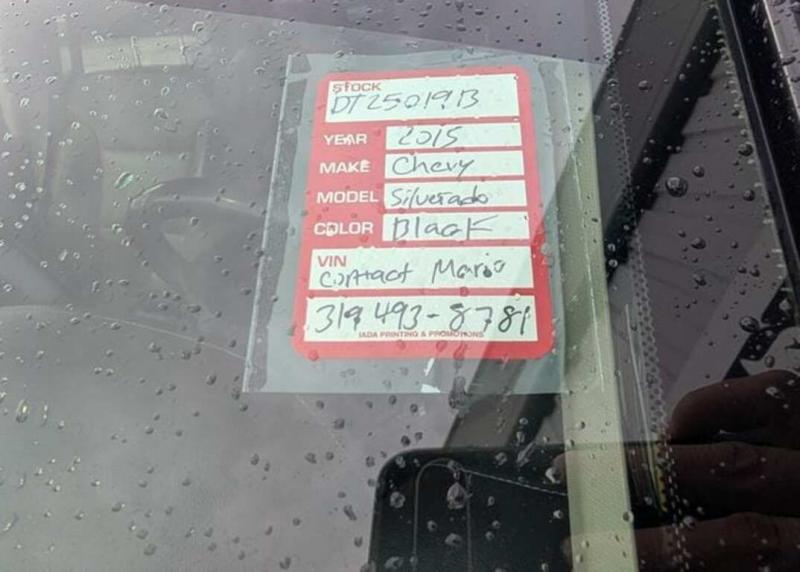 STOCK
DT25019B
YEAR 2015
MAKE Chevy
MODEL Silverado
COLOR Black
VIN
Contact Mario
319 493-8781
IADA PRINTING & PROMOTIONS